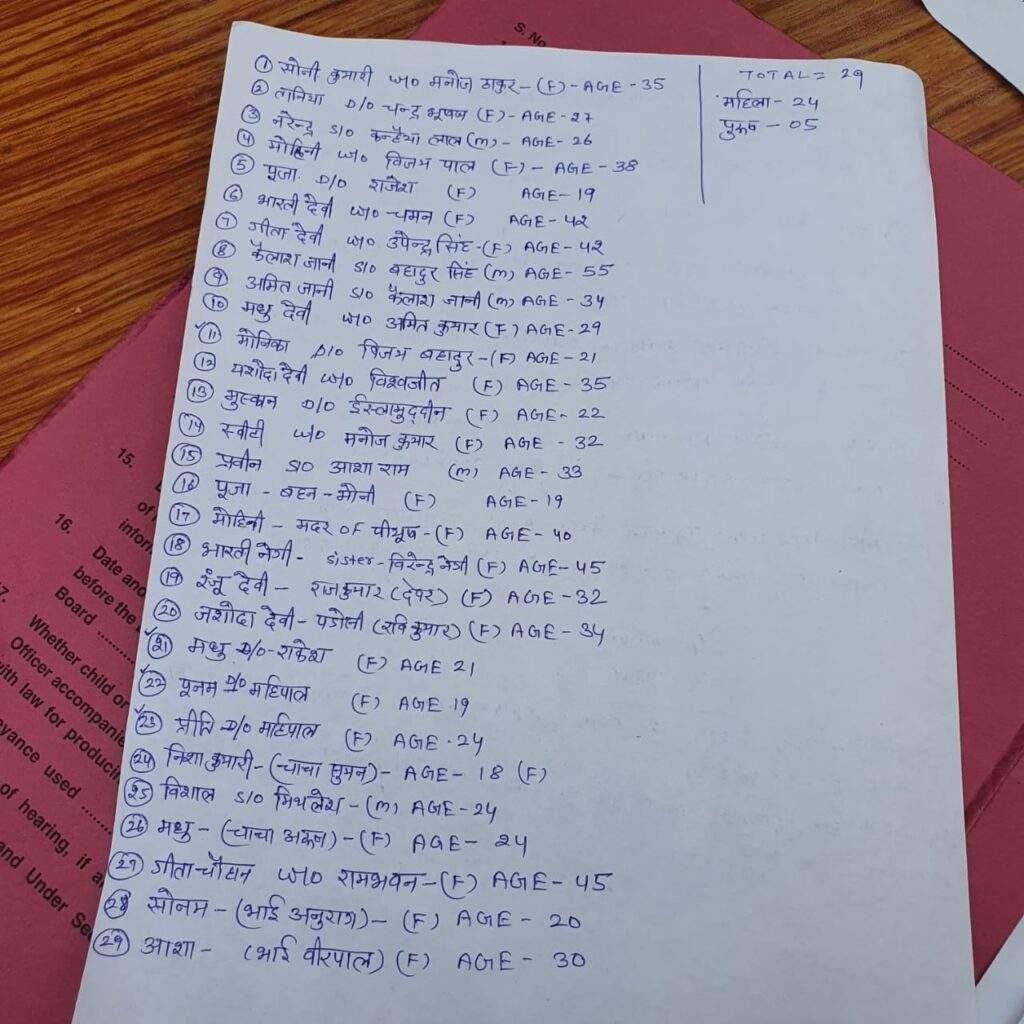 S. No
① सोनी कुमारी w/o मनोज ठाकुर - (F) - AGE - 35
② तानिया D/O चन्द्र भूषण (F) - AGE - 27
③ नरेन्द्र S/O कन्हैया लाल (M) - AGE - 26
④ मोहिनी w/o विजय पाल (F) - AGE - 38
⑤ पूजा D/O राजेश (F) AGE - 19
⑥ भारती देवी w/o चमन (F) AGE - 42
⑦ गीता देवी w/o उपेन्द्र सिंह - (F) AGE - 42
⑧ कैलाश जानी S/O बहादुर सिंह (M) AGE - 55
⑨ अमित जानी S/O कैलाश जानी (M) AGE - 34
⑩ मधु देवी w/o अमित कुमार (F) AGE - 29
⑪ मोनिका D/O विजय बहादुर - (F) AGE - 21
⑫ यशोदा देवी w/o विश्वजीत (F) AGE - 35
⑬ मुस्कान D/O ईस्लामुद्दीन (F) AGE - 22
⑭ स्वीटी w/o मनोज कुमार (F) AGE - 32
⑮ प्रवीन S/O आशा राम (M) AGE - 33
⑯ पूजा - बहन - मोनी (F) AGE - 19
⑰ मोहिनी - मदर OF पीयूष - (F) AGE - 40
⑱ भारती नेगी - sister - विरेन्द्र नेगी (F) AGE - 45
⑲ रंजू देवी - राजकुमार (देवर) (F) AGE - 32
⑳ जशोदा देवी - पडोसी (रवि कुमार) (F) AGE - 34
㉑ मधु D/O - राकेश (F) AGE 21
㉒ पूनम D/O महिपाल (F) AGE 19
㉓ प्रीति D/O महिपाल (F) AGE - 24
㉔ निशा कुमारी - (चाचा सुमन) - AGE - 18 (F)
㉕ विशाल S/O मिथलेश - (M) AGE - 24
㉖ मधु - (चाचा अरुन) - (F) AGE - 24
㉗ गीता चौहान w/o रामभवन - (F) AGE - 45
㉘ सोनम - (भाई अनुराग) - (F) AGE - 20
㉙ आशा - (भाई वीरपाल) (F) AGE - 30
TOTAL = 29
महिला - 24
पुरुष - 05
15.
of
inform
16.
Date and
before the
Board
Whether child or
Officer accompanie
with law for producin
veyance used
of hearing, if a
and Under Sec